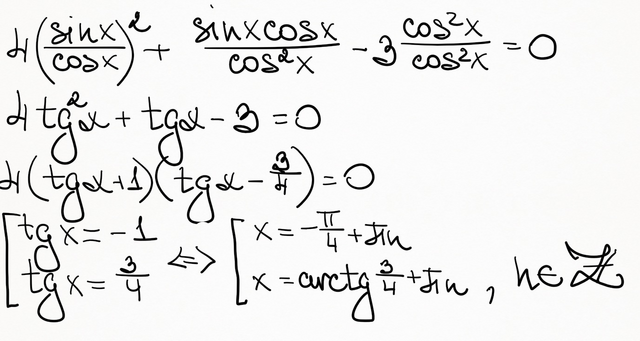 4(sinx/cosx)² + sinxcosx/cos²x - 3 cos²x/cos²x = 0
4tg²x + tgx - 3 = 0
4(tgx+1)(tgx - 3/4) = 0
[ tgx = -1 <=> [ x = -π/4 + πn
tgx = 3/4 x = arctg 3/4 + πn , n∈ℤ